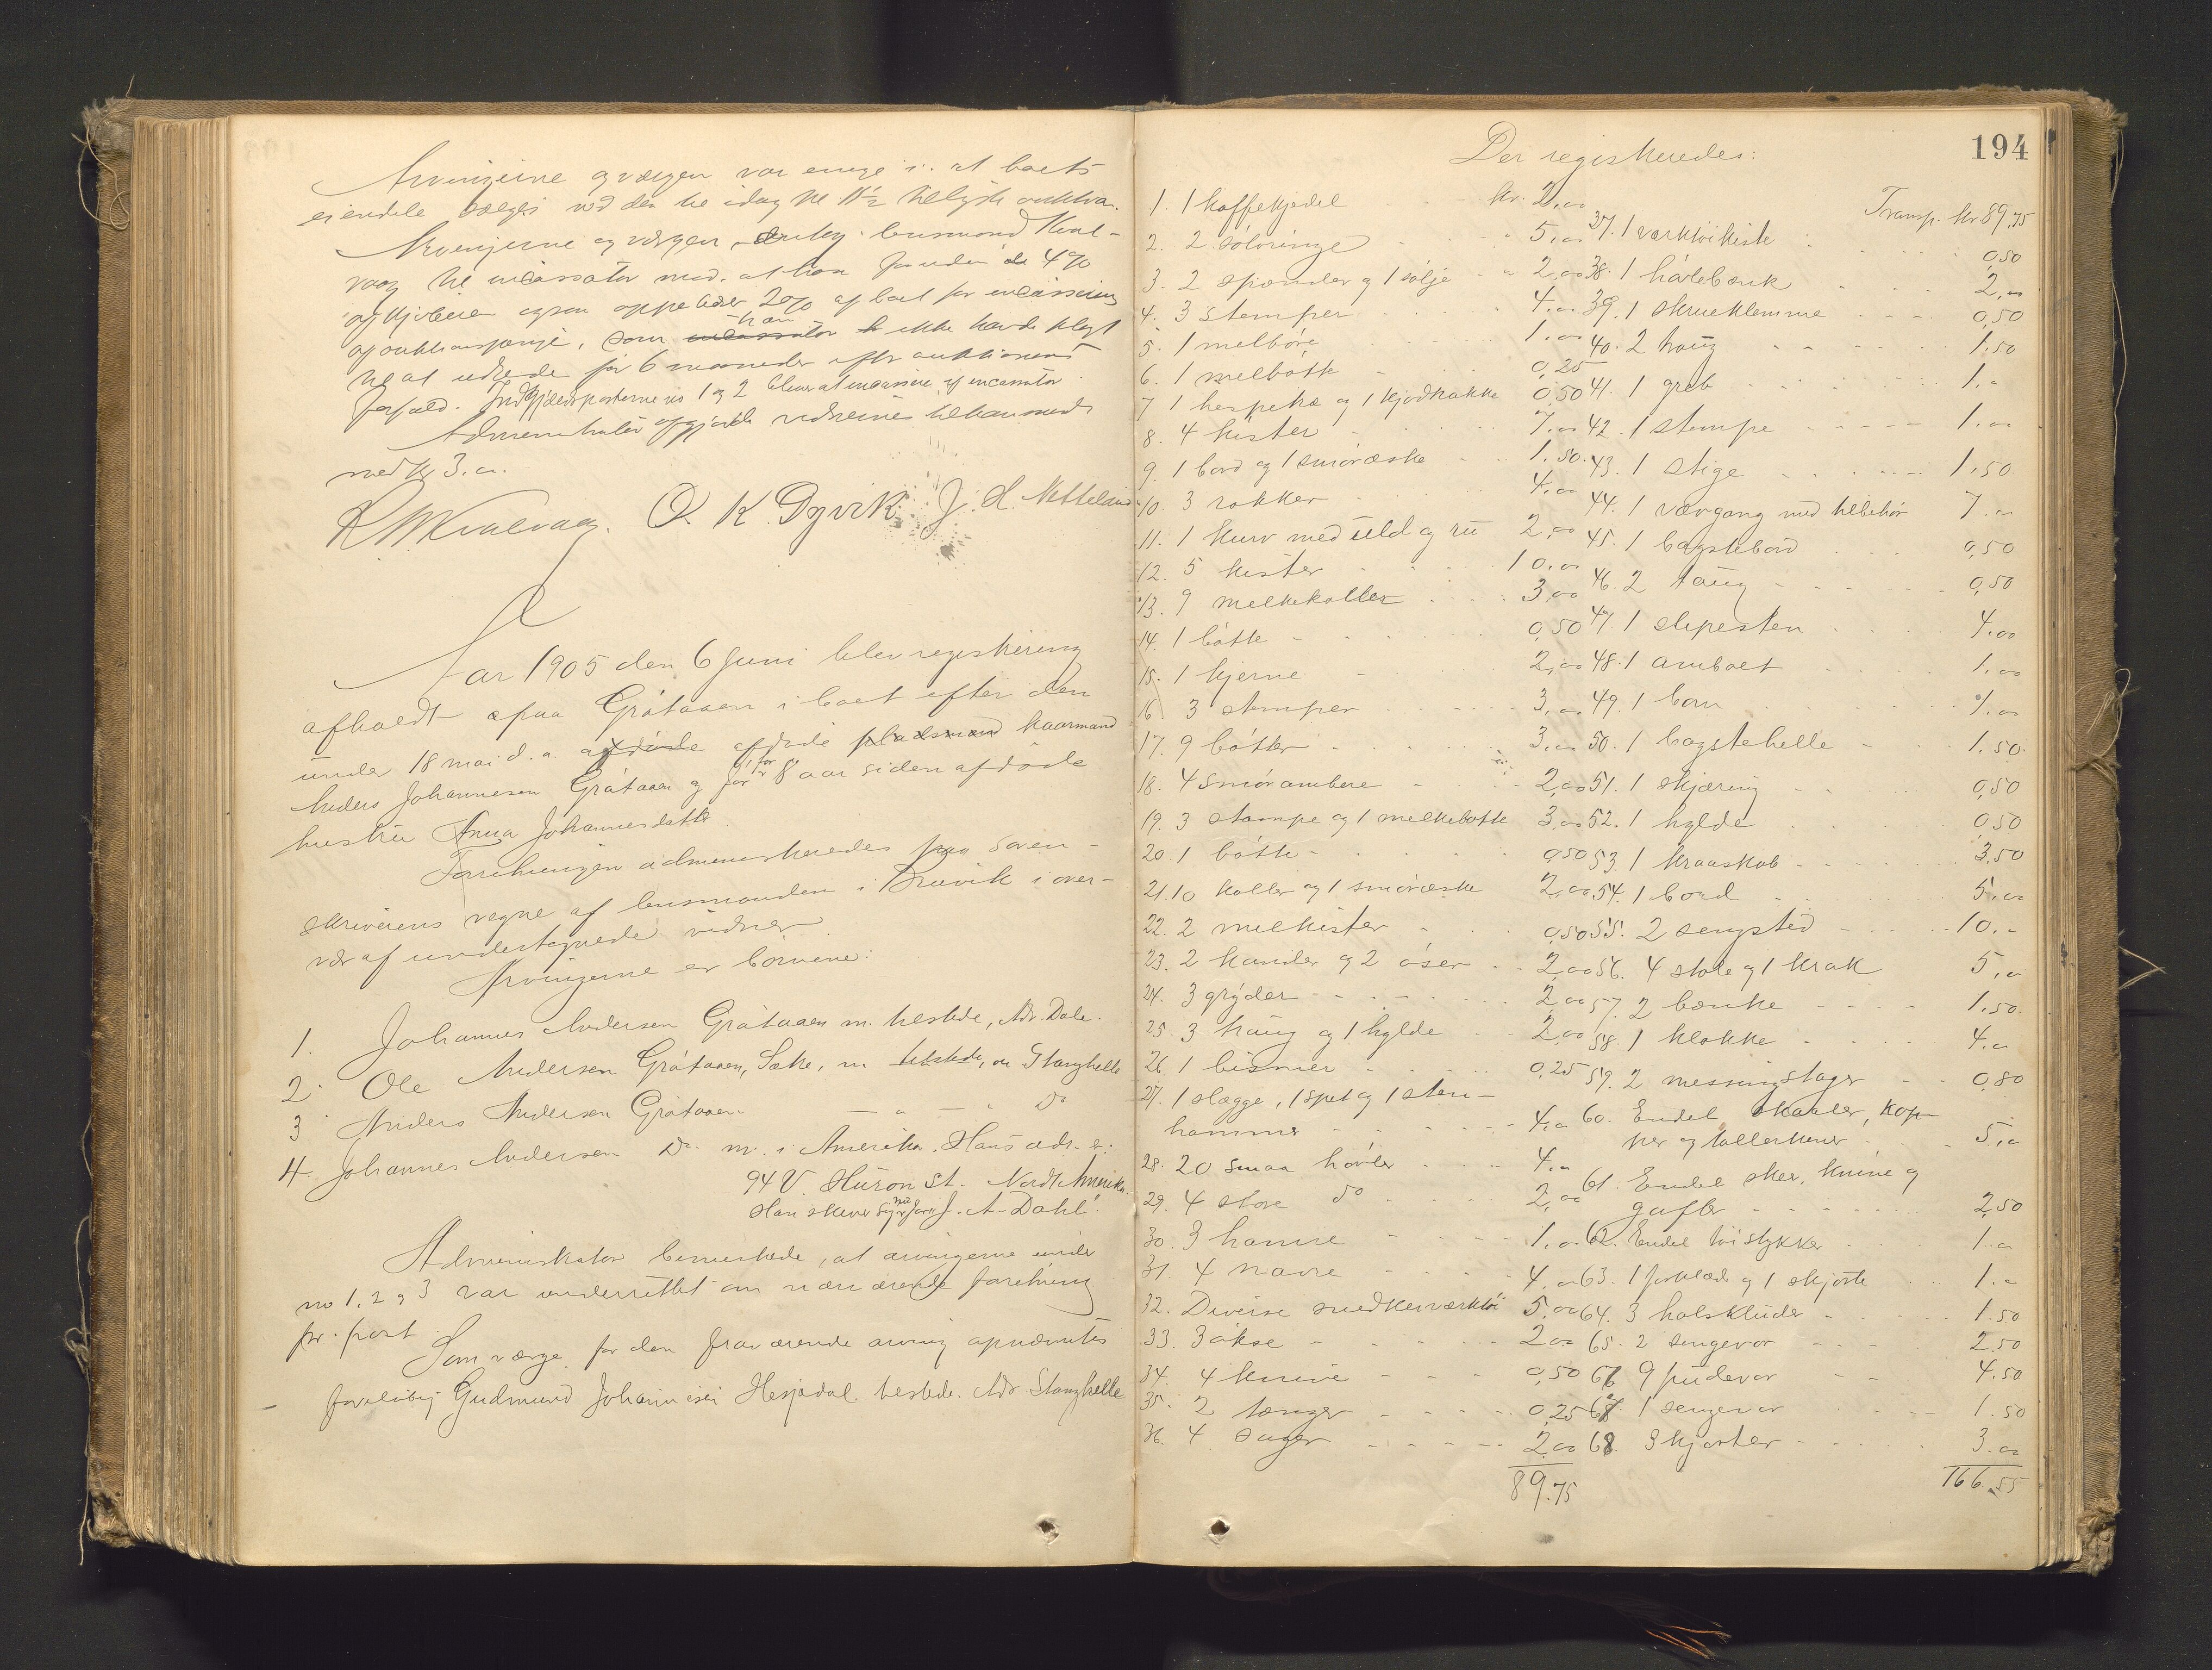 Arvingerne og værgen var enige i at boets
eiendele sælges ved den til idag kl 11½ belyste auktion.
Arvingerne og værgen antog lensmand Kval-
vaag til incassator mod at han foruden de 4%
af kjøberen ogsaa oppebærer 2% af boet for incassering
af auktionspenge, som han ikke havde pligt
til at udrede før 6 maaneder efter auktionens
forfald. Indgjældsposterne no 1 og 2 bliver at incassere af incassator
Administrator opgjorde vidnerne tilhaanende
med kr 3.00.
R M Kvalvaag. O. K. Dyvik J. H. Nettelund
Aar 1905 den 6 Juni blev registrering
afholdt paa Gråtaaen i boet efter den
under 18 mai d. a. afdøde afdøde pladsmand kaarmand
Anders Johannesen Gråtaaen og for 8 aar siden afdøde
hustru Anna Johannesdatter.
Forretningen administreredes paa soren-
skriverens vegne af lensmanden i Bruvik i over-
vær af undertegnede vidner.
Arvingerne er børnene:
1. Johannes Andersen Gråtaaen m. tilstede, Adr. Dale.
2. Ole Andersen Gråtaaen, m. tilstede, Stanghelle
3 Anders Andersen Gråtaaen — " — " Do
4. Johannes Andersen Do m. i Amerika. Hans adr. er:
94 V. Huron St. Nordt Amerika.
Han skriver sig nu for J. A. Dahl.
Administrator bemerkede, at arvingerne under
no 1, 2 og 3 var underrettet om nærværende forretning
pr. post.
Som værge for den fraværende arving opnævntes
foreløbig Gudmund Johannesen Hesjedal tilstede. Adr. Stanghelle
194
Der registreredes:
1. 1 kaffekjedel kr. 2,00
2. 2 sølvringe 5,00
3. 2 spænder og 1 sølje 2,00
4. 3 stemper 4,00
5. 1 melbøre 1,00
6. 1 melbøtte 0,25
7 1 hespetræ og 1 kjødkakke 0,50
8. 4 kister 7,00
9. 1 bord og 1 smøræske 1,50.
10. 3 rokker 4,00
11. 1 kurv med uld og ru 2,00
12. 5 kister 10,00
13. 9 melkekoller 3,00
14. 1 bøtte 0,50
15. 1 kjerne 2,00
16 3 stemper 3,00
17. 9 bøtter 3,00
18. 4 smørambere 2,00
19. 3 stampe og 1 melkebøtte 3,00
20. 1 bøtte 0,50
21. 10 koller og 1 smøræske 2,00
22. 2 melkister 0,50
23. 2 kander og 2 øser 2,00
24. 3 gryder 2,00
25. 3 traug og 1 hylde 2,00
26. 1 bismer 0,25
27. 1 slægge, 1 spet og 1 sten-
hammer 4,00
28. 20 smaa høvler 4,00
29. 4 store Do 2,00
30. 3 hamre 1,00
31. 4 navre 4,00
32. Diverse snedkerværktøi 5,00
33. 3 økse 2,00
34. 4 knive 0,50
35. 2 tænger 0,25
36. 4 sager 2,00
89.75
Transp. kr. 89,75
37. 1 værktøikiste 0,50
38. 1 høvlebænk 2,00
39. 1 skrueklemme 0,50
40. 2 traug 1,50
41. 1 greb 1.00
42. 1 stempe 1.00
43. 1 stige 1,50
44. 1 vævgang med tilbehør 7.00
45. 1 bagstebord 0,50
46. 2 taug 0,50
47. 1 slipesten 4.00
48. 1 ambolt 1.00
49. 1 bom 1.00
50. 1 bagstehelle 1.50
51. 1 skjæring 0,50
52. 1 hylde 0,50
53. 1 kraaskab 3,50
54. 1 bord 5.00
55. 2 sengsted 10.00
56. 4 stole og 1 krak 5,00
57. 2 bænke 1,50.
58. 1 klokke 4.00
59. 2 messingstager 0,80
60. Endel skaaler, kop-
per og tallerkener 5,00
61. Endel sker, knive og
gafler 2,50
62. Endel tøistykker 1.00
63. 1 forklæde og 1 skjorte 1.00
64. 3 halskluder 1.50
65. 2 sengevor 2.50
66 9 pudevor 4.50
67. 1 sengevor 1.50
68. 3 kjorter 3.00
166.55